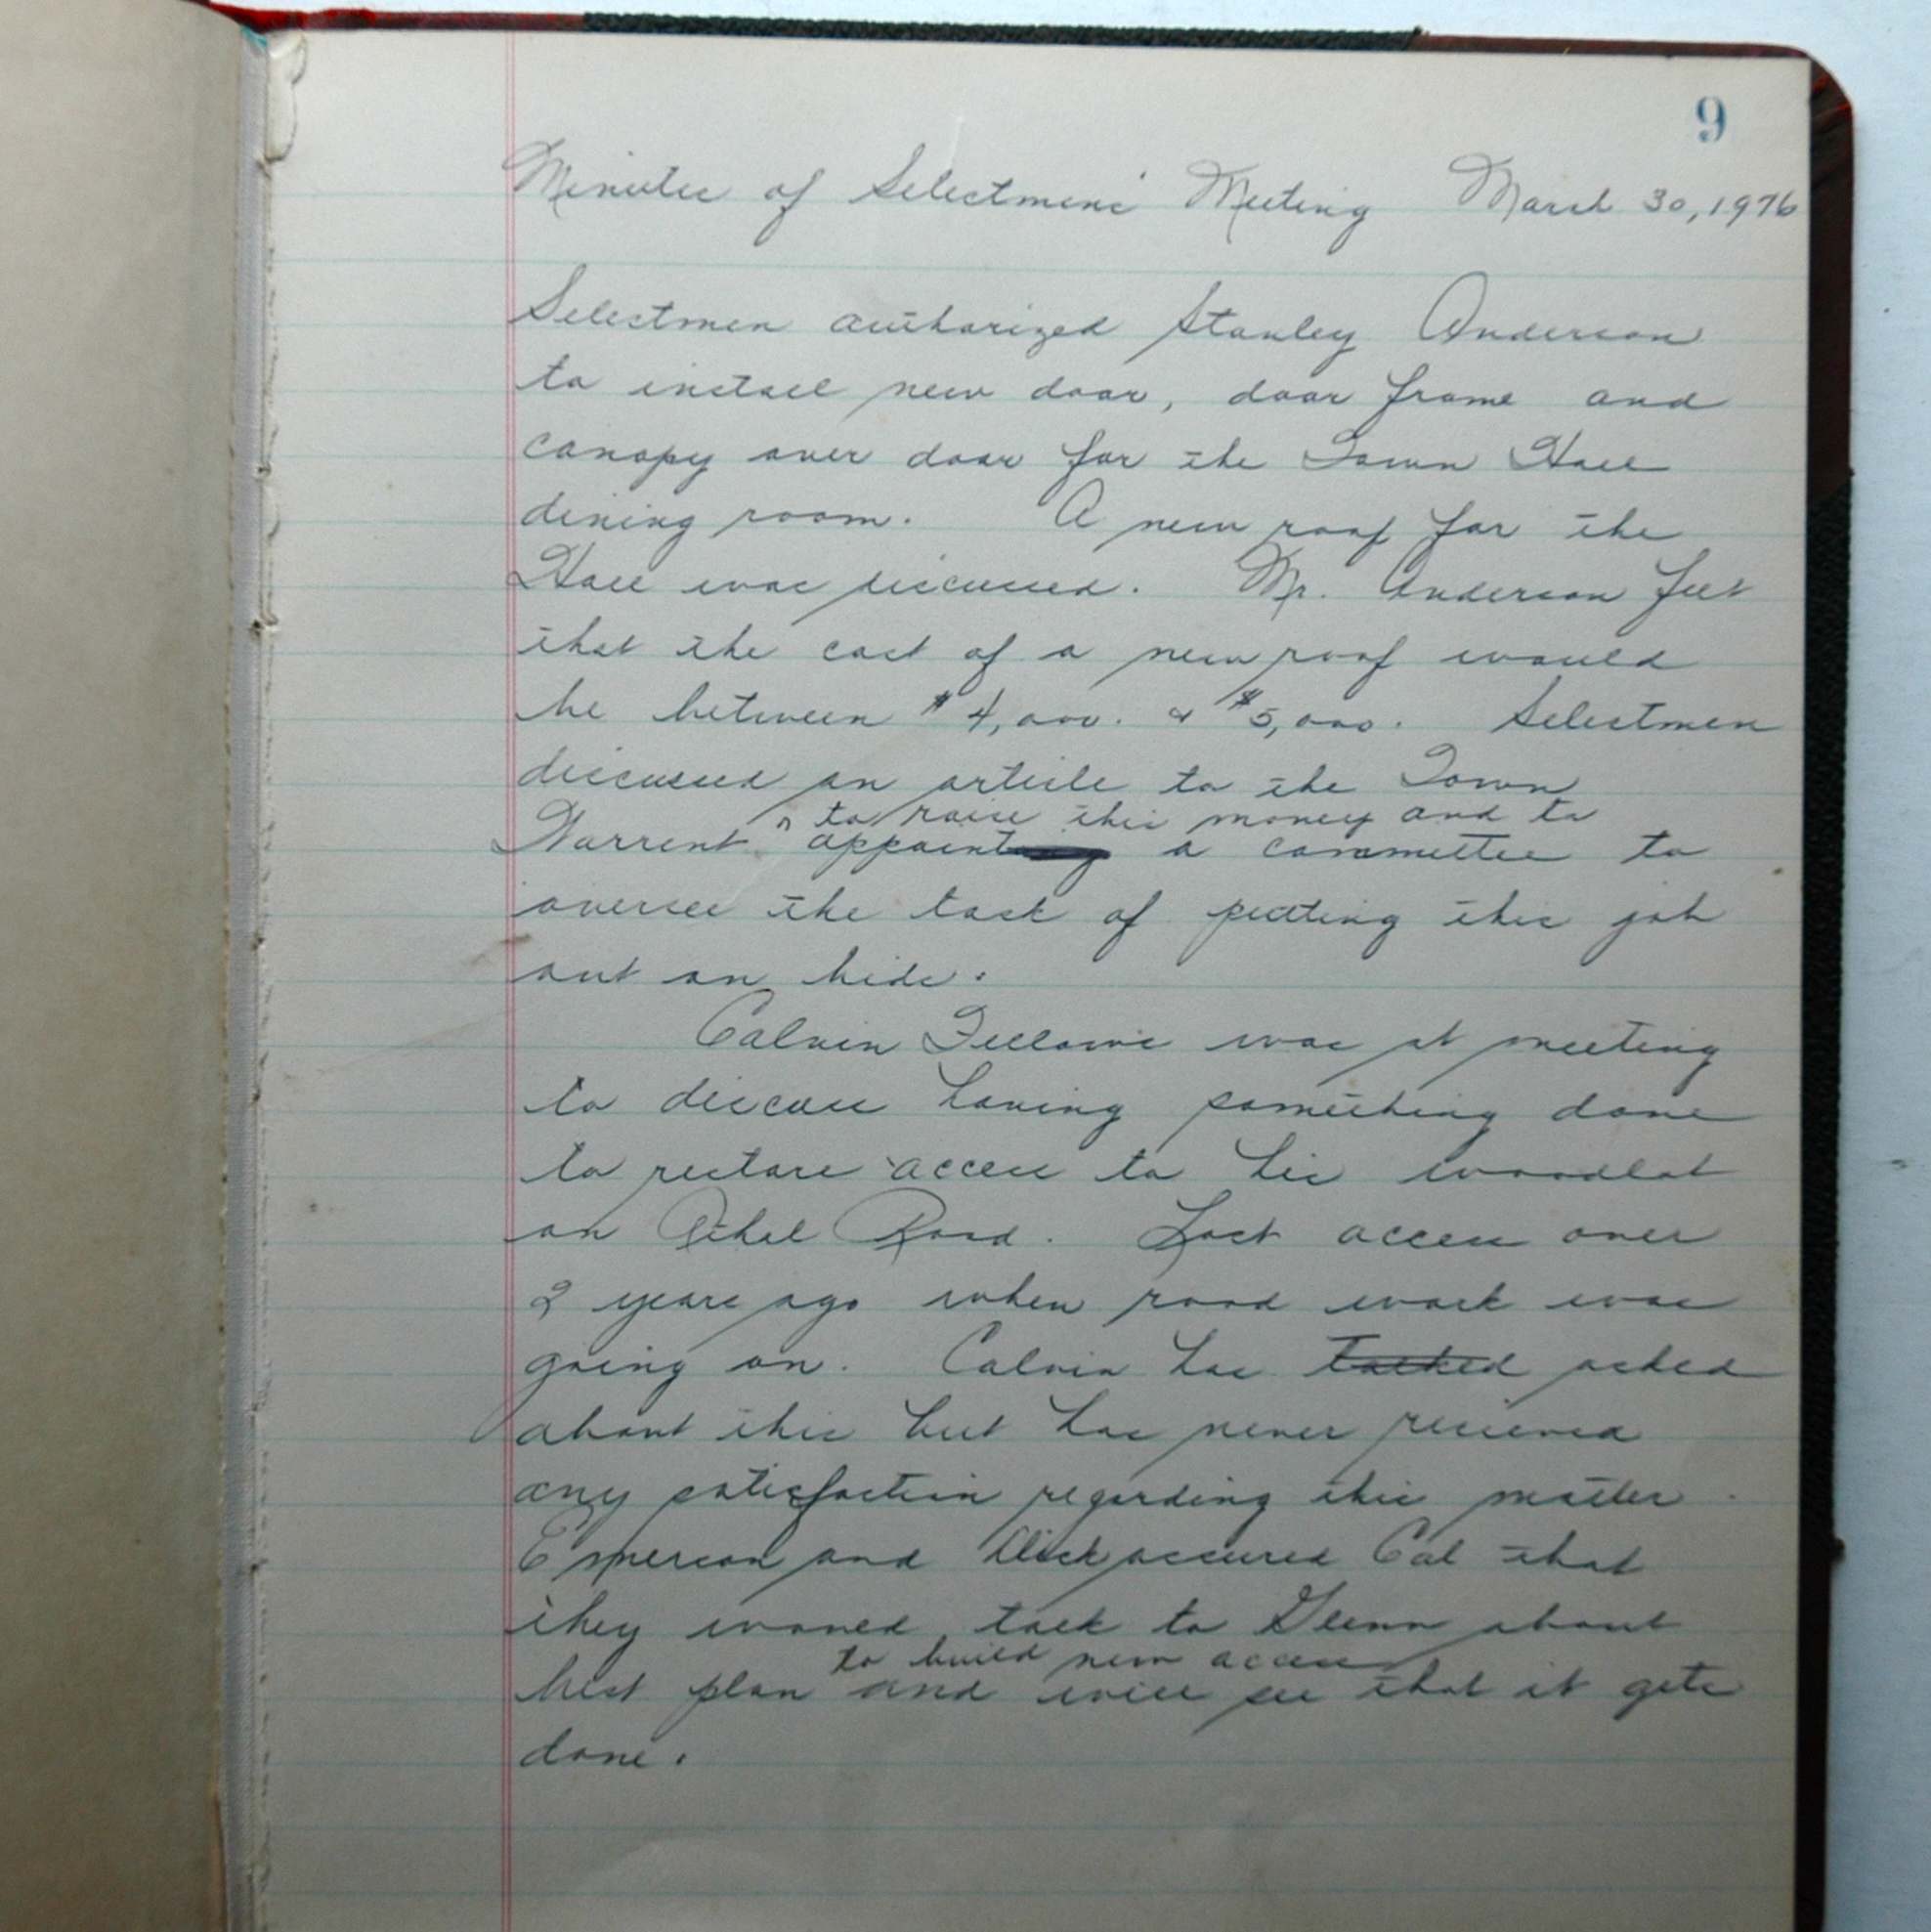 9
Minutes of Selectmens' Meeting March 30, 1976
Selectmen authorized Stanley Anderson
to install new door, door frame and
canopy over door for the Town Hall
dining room. A new roof for the
Hall was discussed. Mr. Anderson felt
that the cost of a new roof would
be between $4,000. & $5,000. Selectmen
discussed an article to the Town
to raise this money and to
Warrent ^ appoint a committee to
oversee the task of putting this job
out on bids.
Calvin Fellows was at meeting
to discuss having something done
to restore access to his woodlot
on Athol Road. Lost access over
2 years ago when road work was
going on. Calvin has talked asked
about this but has never recieved
any satisfaction regarding this matter.
Emerson and Dick assured Cal that
they would talk to Glenn about
to build new access
best plan and will see that it gets
done.